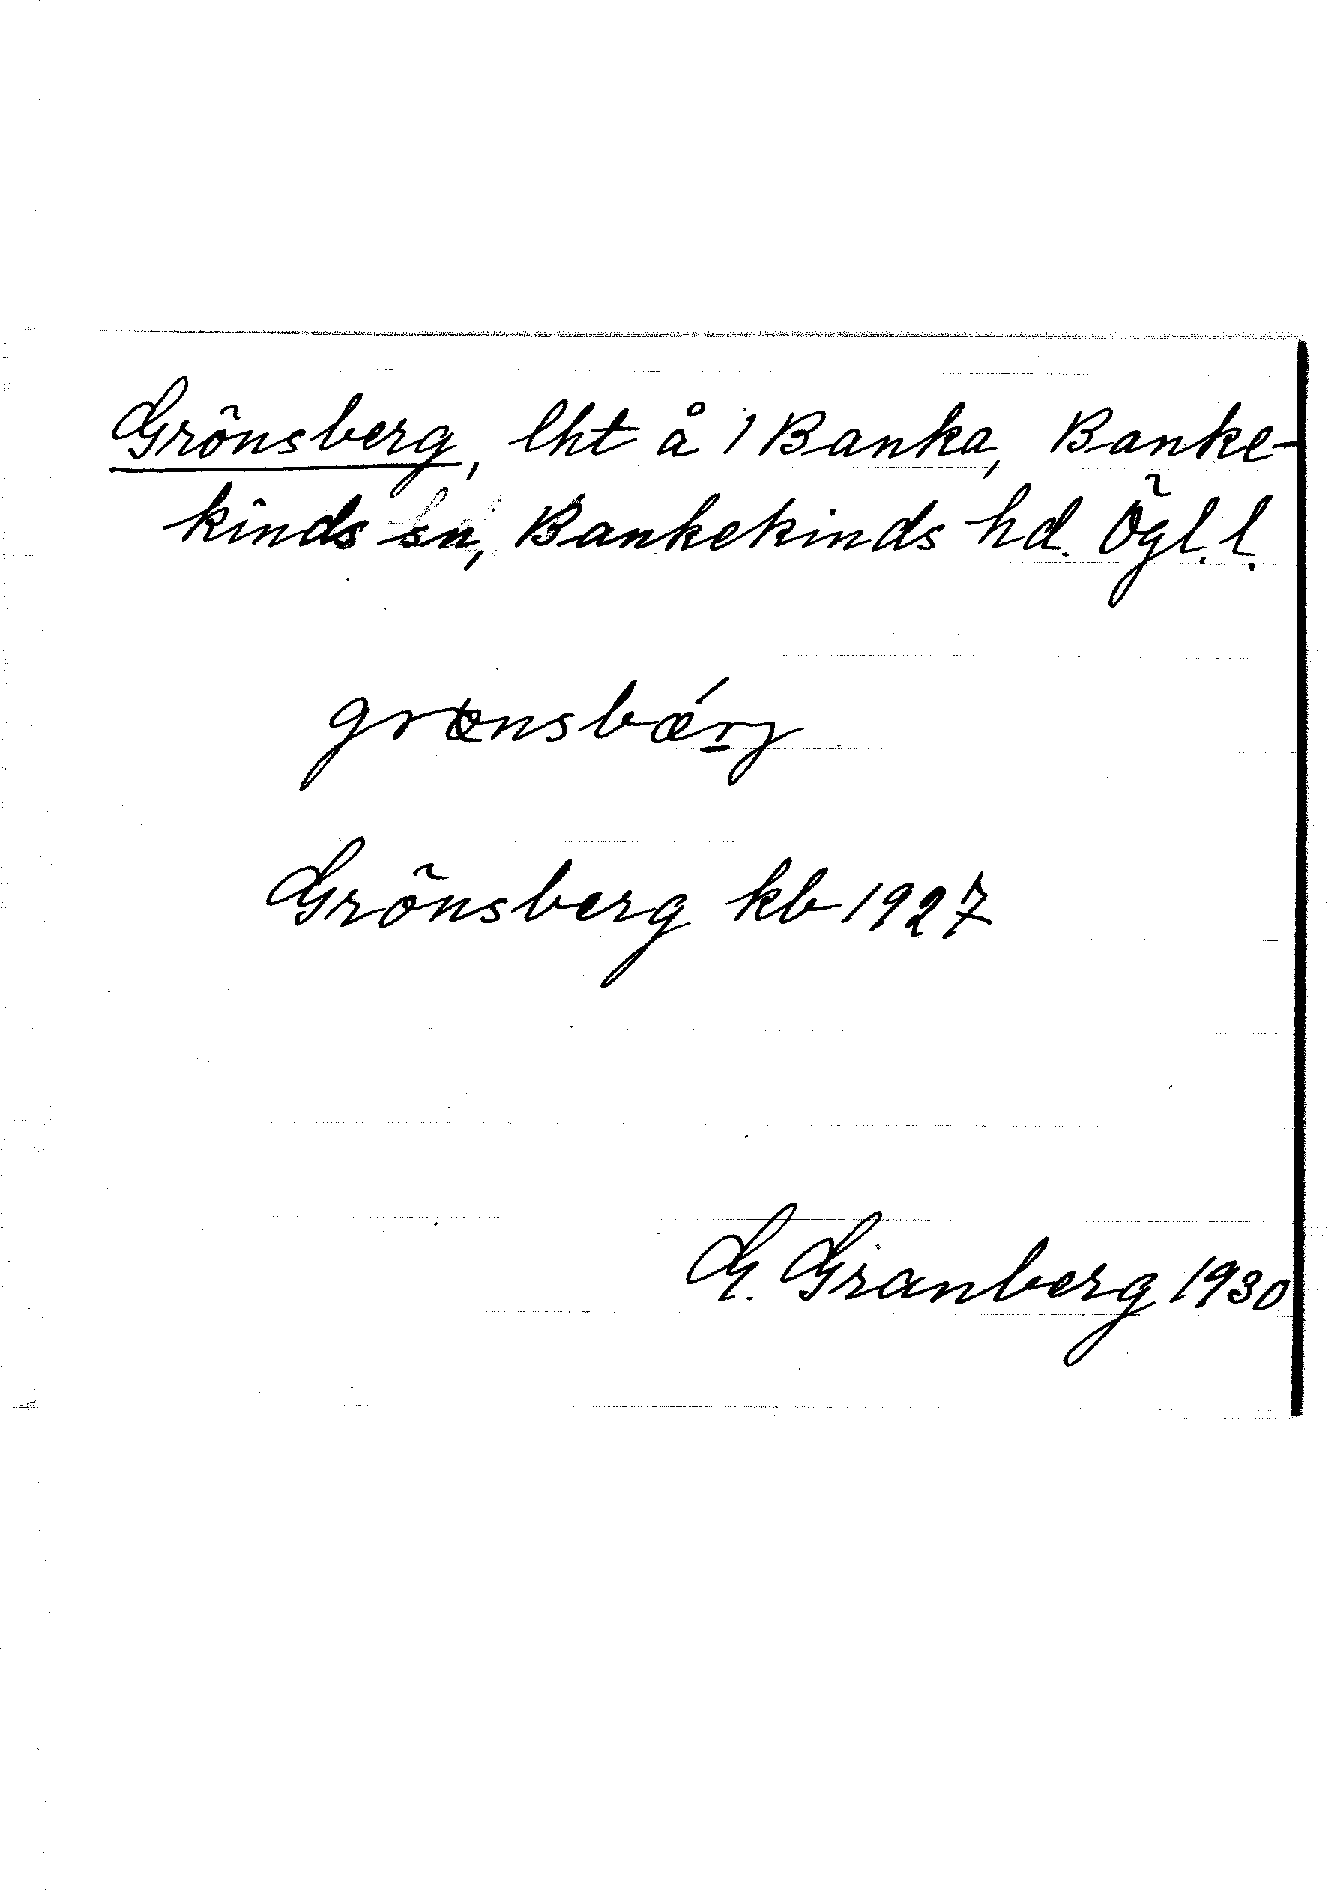 Grönsberg, lht å 1 Banka, Banke-
kinds sn, Bankekinds hd. Ögl. l.
grœnsbǽrj
Grönsberg kb 1927
G. Granberg 1930